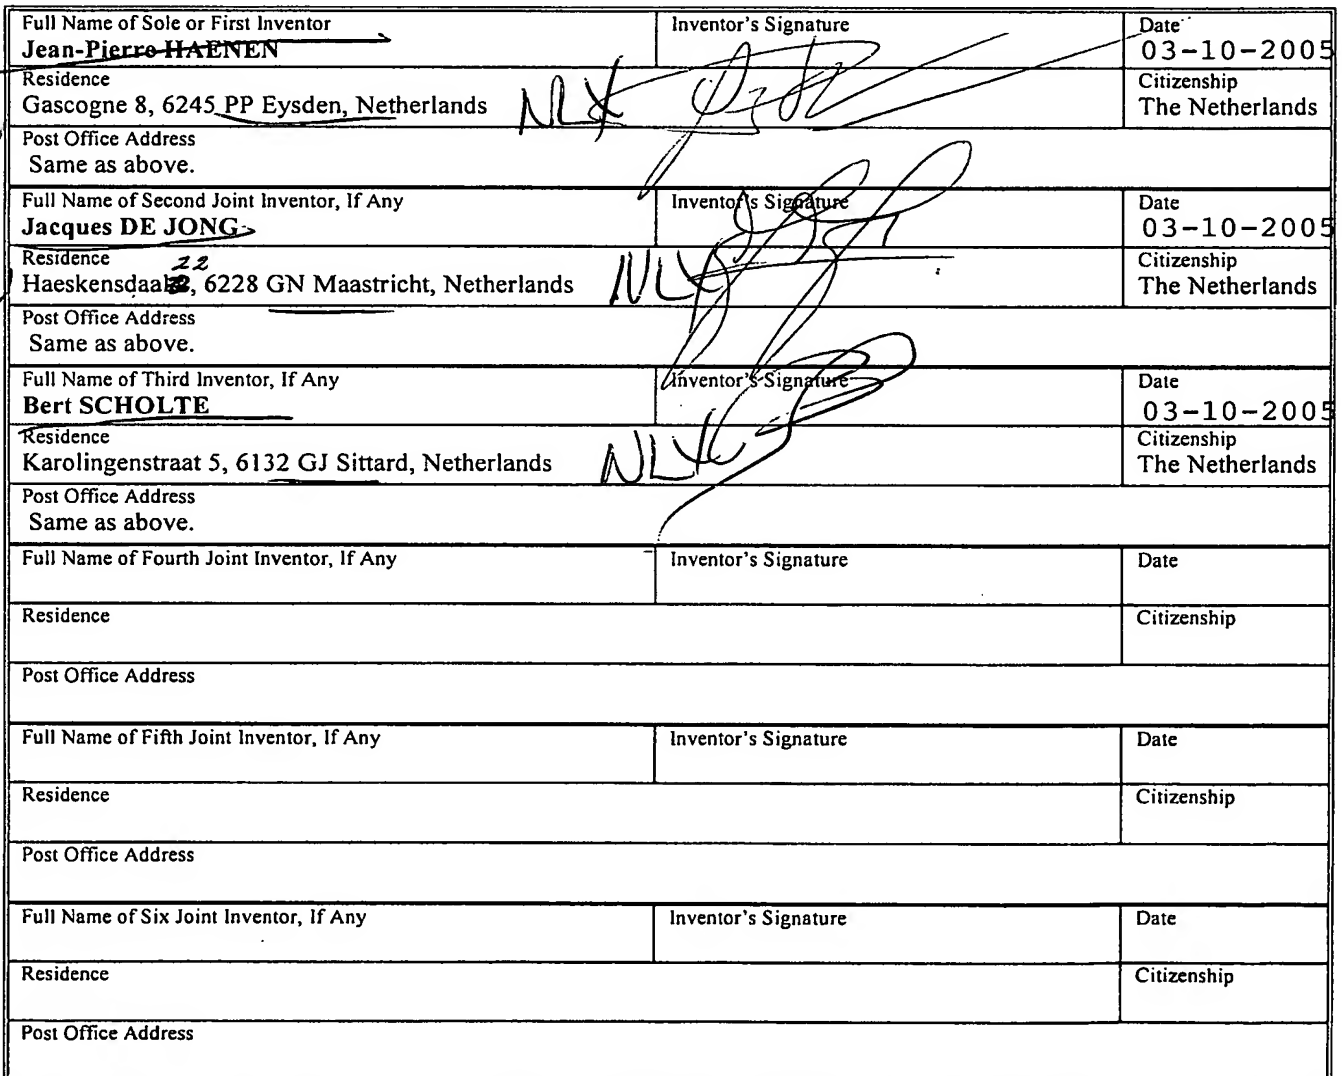 Full Name of Sole or First Inventor Inventor's Signature Date
Jean-Pierre HAENEN 03-10-2005
Residence Citizenship
Gascogne 8, 6245 PP Eysden, Netherlands NLX The Netherlands
Post Office Address
Same as above.
Full Name of Second Joint Inventor, If Any Inventor's Signature Date
Jacques DE JONG 03-10-2005
Residence 22 Citizenship
Haeskensdaal, 6228 GN Maastricht, Netherlands NLX The Netherlands
Post Office Address
Same as above.
Full Name of Third Inventor, If Any Inventor's Signature Date
Bert SCHOLTE 03-10-2005
Residence Citizenship
Karolingenstraat 5, 6132 GJ Sittard, Netherlands NLX The Netherlands
Post Office Address
Same as above.
Full Name of Fourth Joint Inventor, If Any Inventor's Signature Date
Residence Citizenship
Post Office Address
Full Name of Fifth Joint Inventor, If Any Inventor's Signature Date
Residence Citizenship
Post Office Address
Full Name of Six Joint Inventor, If Any Inventor's Signature Date
Residence Citizenship
Post Office Address